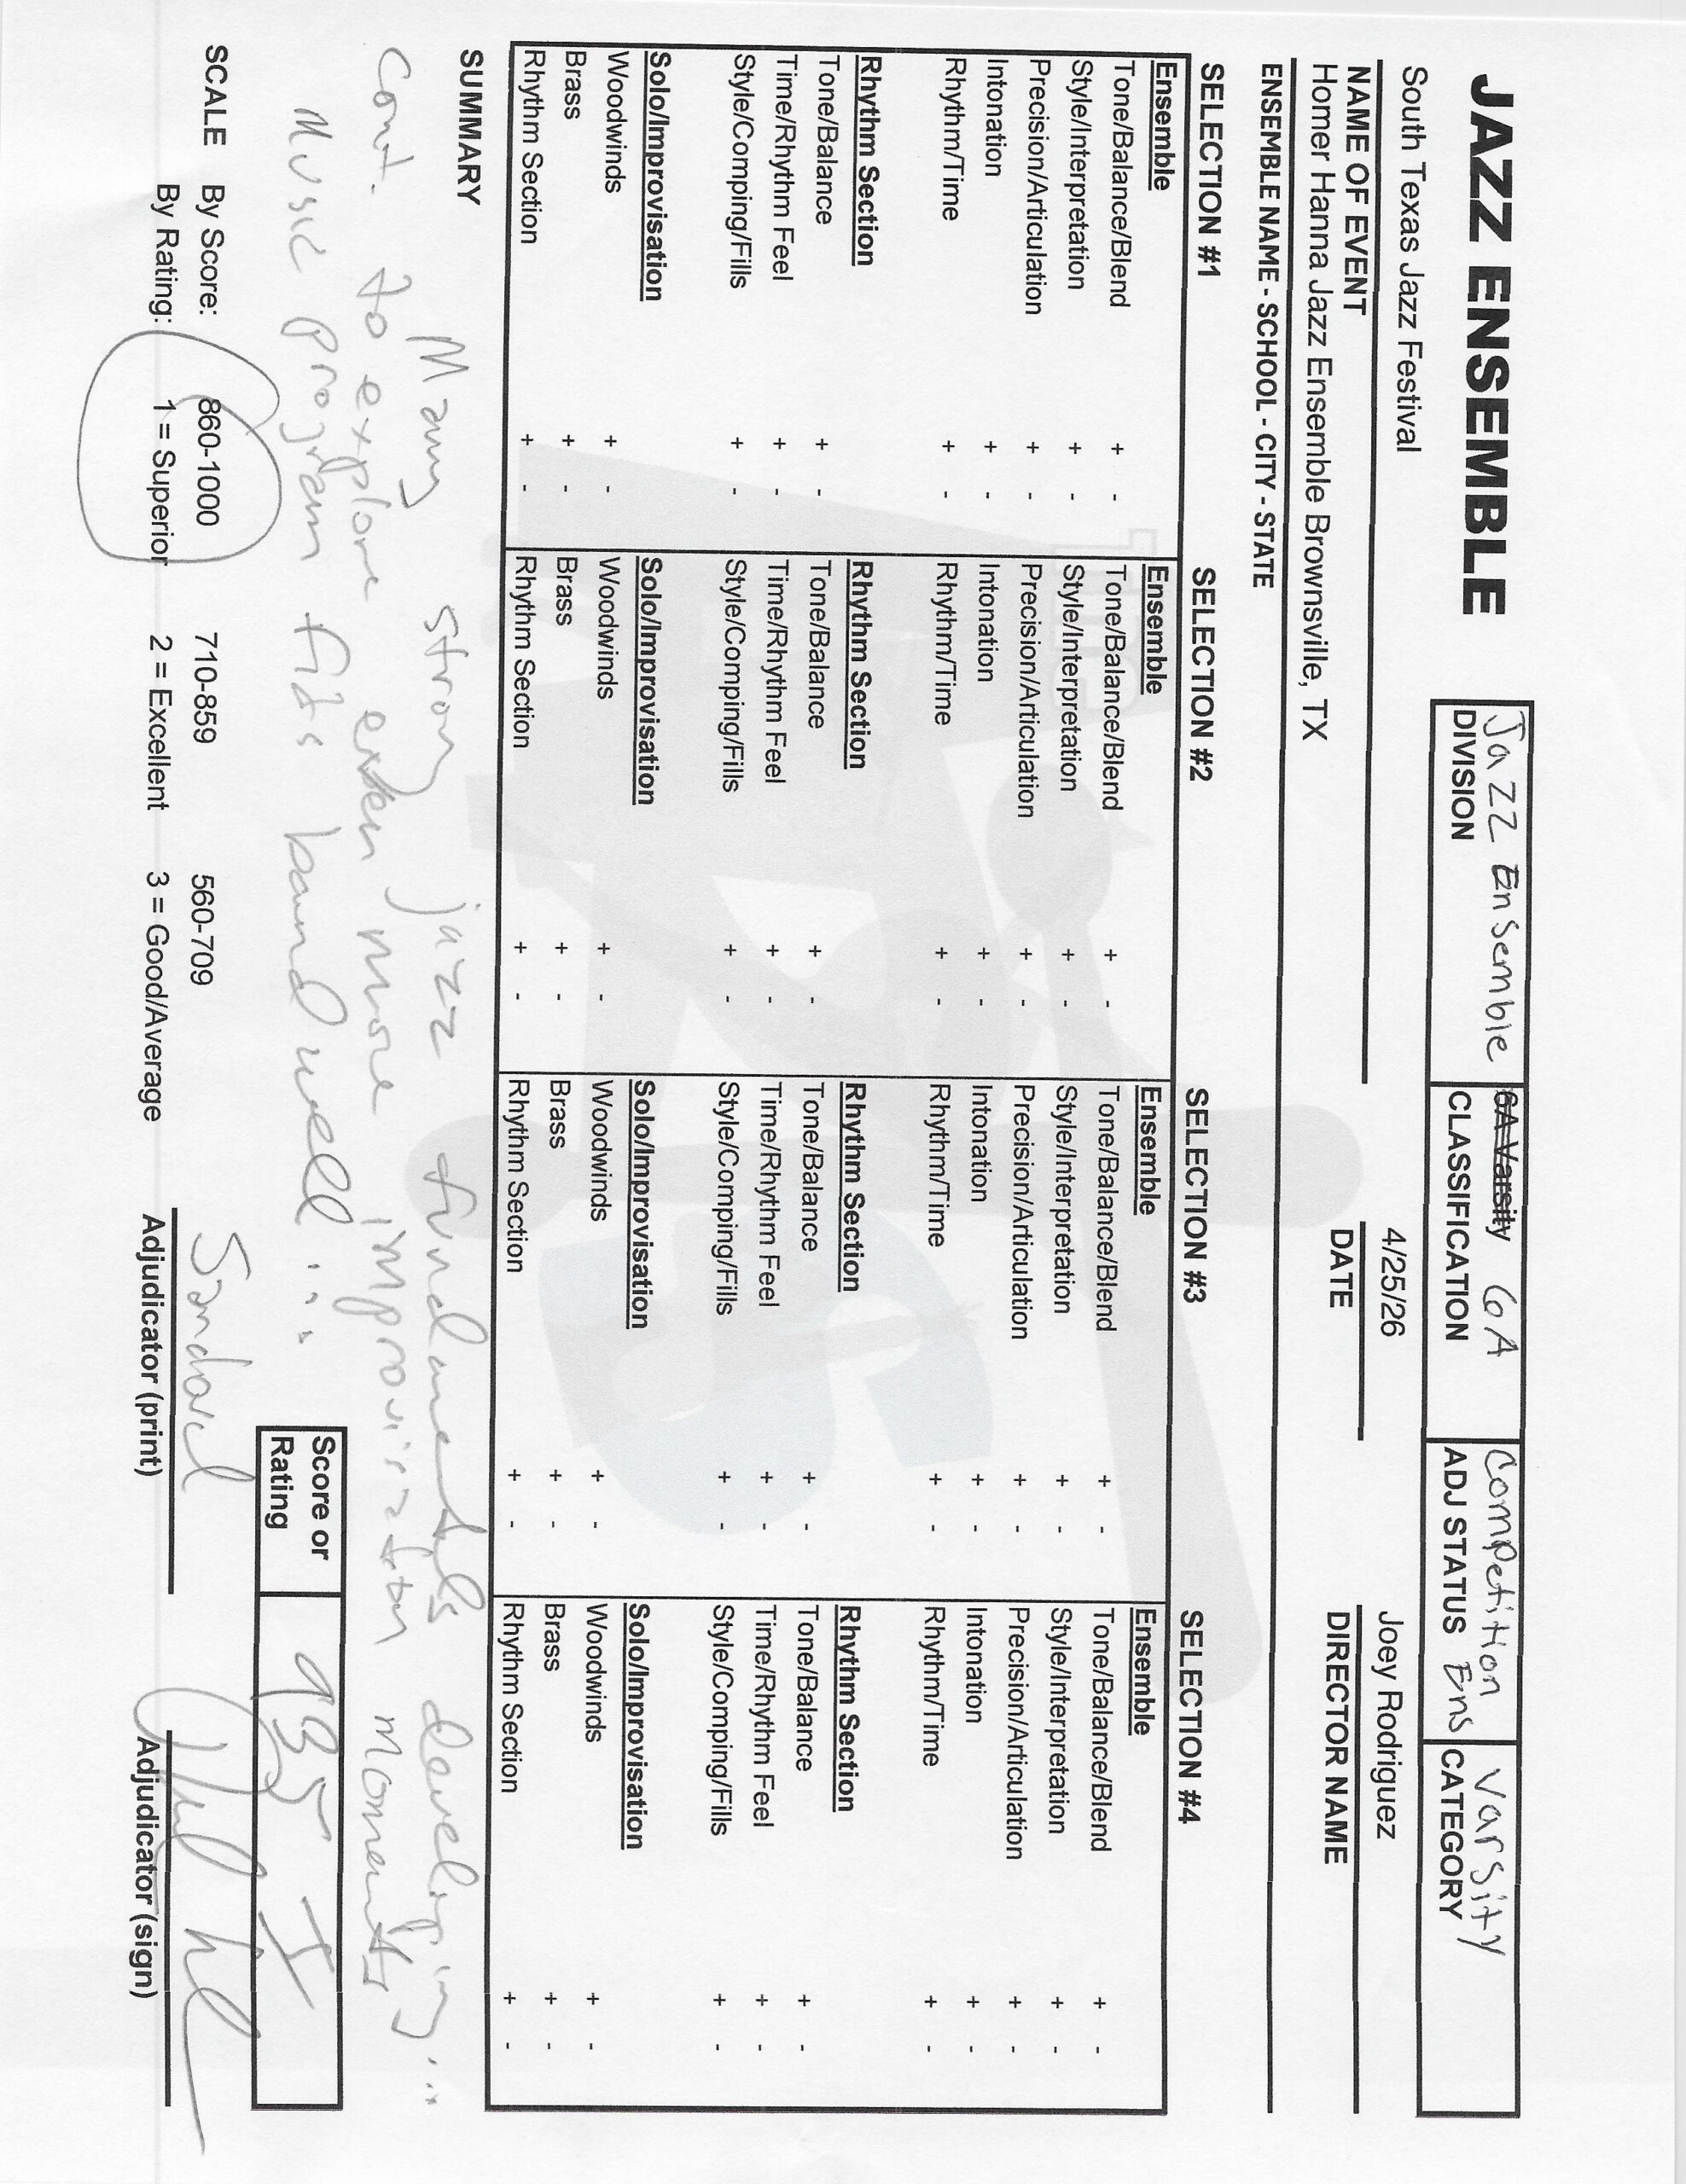 JAZZ ENSEMBLE
Jazz Ensemble 6A Varsity 6A Competition Ens Varsity
DIVISION CLASSIFICATION ADJ STATUS CATEGORY
South Texas Jazz Festival 4/25/26 Joey Rodriguez
NAME OF EVENT DATE DIRECTOR NAME
Homer Hanna Jazz Ensemble Brownsville, TX
ENSEMBLE NAME - SCHOOL - CITY - STATE
SELECTION #1 SELECTION #2 SELECTION #3 SELECTION #4
Ensemble Ensemble Ensemble Ensemble
Tone/Balance/Blend + - Tone/Balance/Blend + - Tone/Balance/Blend + - Tone/Balance/Blend + -
Style/Interpretation + - Style/Interpretation + - Style/Interpretation + - Style/Interpretation + -
Precision/Articulation + - Precision/Articulation + - Precision/Articulation + - Precision/Articulation + -
Intonation + - Intonation + - Intonation + - Intonation + -
Rhythm/Time + - Rhythm/Time + - Rhythm/Time + - Rhythm/Time + -
Rhythm Section Rhythm Section Rhythm Section Rhythm Section
Tone/Balance + - Tone/Balance + - Tone/Balance + - Tone/Balance + -
Time/Rhythm Feel + - Time/Rhythm Feel + - Time/Rhythm Feel + - Time/Rhythm Feel + -
Style/Comping/Fills + - Style/Comping/Fills + - Style/Comping/Fills + - Style/Comping/Fills + -
Solo/Improvisation Solo/Improvisation Solo/Improvisation Solo/Improvisation
Woodwinds + - Woodwinds + - Woodwinds + - Woodwinds + -
Brass + - Brass + - Brass + - Brass + -
Rhythm Section + - Rhythm Section + - Rhythm Section + - Rhythm Section + -
SUMMARY
Many strong jazz fundamentals developing...
cont. to explore even more improvisation moments
Music program fits band well...
Score or Rating 935 I
SCALE By Score: 860-1000 710-859 560-709
By Rating: 1 = Superior 2 = Excellent 3 = Good/Average
Sandoval
Adjudicator (print) Adjudicator (sign)